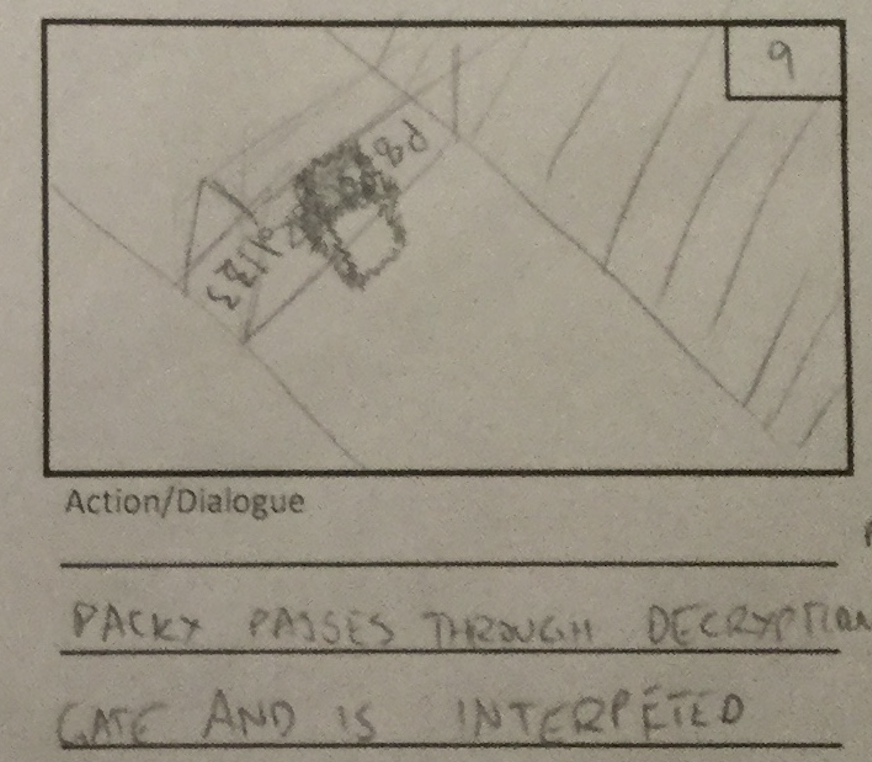 9
Action/Dialogue
PACKY PASSES THROUGH DECRYPTION
GATE AND IS INTERPETED